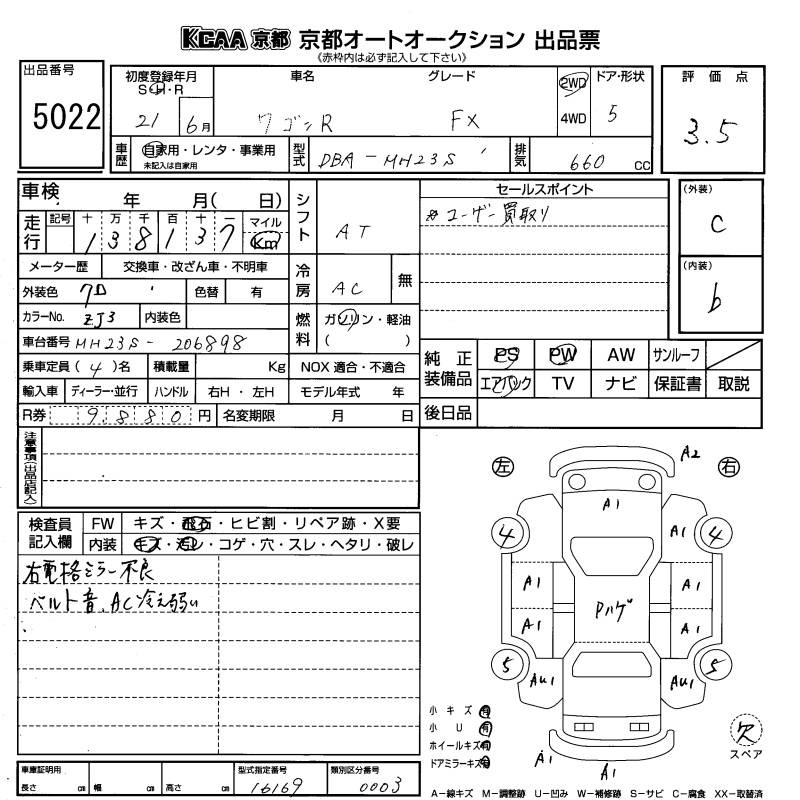 KCAA 京都 京都オートオークション 出品票
(赤枠内は必ず記入して下さい)
出品番号
5022
初度登録年月
S・H・R
21 6月
車名
ワゴンR
グレード
FX
2WD
4WD
ドア・形状
5
評価点
3.5
車歴
自家用・レンタ・事業用
未記入は自家用
型式
DBA-MH23S
排気
660 CC
車検 年 月( 日)
走行
記号 十 万 千 百 十 一
1 3 8 1 3 7
マイル
Km
メーター歴 交換車・改ざん車・不明車
外装色 クロ 色替 有
カラーNo. ZJ3 内装色
車台番号 MH23S-206898
乗車定員(4)名 積載量 Kg
輸入車 ディーラー・並行 ハンドル 右H・左H
R券 9880円 名変期限 月 日
シフト
AT
冷房
AC 無
燃料
ガソリン・軽油
( )
NOX 適合・不適合
モデル年式 年
セールスポイント
※ユーザー買取り
(外装)
C
(内装)
b
純正装備品
PS PW AW サンルーフ
エアバック TV ナビ 保証書 取説
後日品
注意事項(出品店記入)
検査員記入欄
FW キズ・飛石・ヒビ割・リペア跡・X要
内装 キズ・汚レ・コゲ・穴・スレ・ヘタリ・破レ
右電格ミラー不良
ベルト音、AC冷え弱い
左 右
A2
A1
4 A1 4
A1 A1
Pハゲ
A1 A1
5 AU1 AU1 5
A1 A1
小キズ 有
小U 有
ホイールキズ 有
ドアミラーキズ 有
欠
スペア
車庫証明用
長さ cm 幅 cm 高さ cm
型式指定番号
16169
類別区分番号
0003
A-線キズ M-調整跡 U-凹み W-補修跡 S-サビ C-腐食 XX-取替済